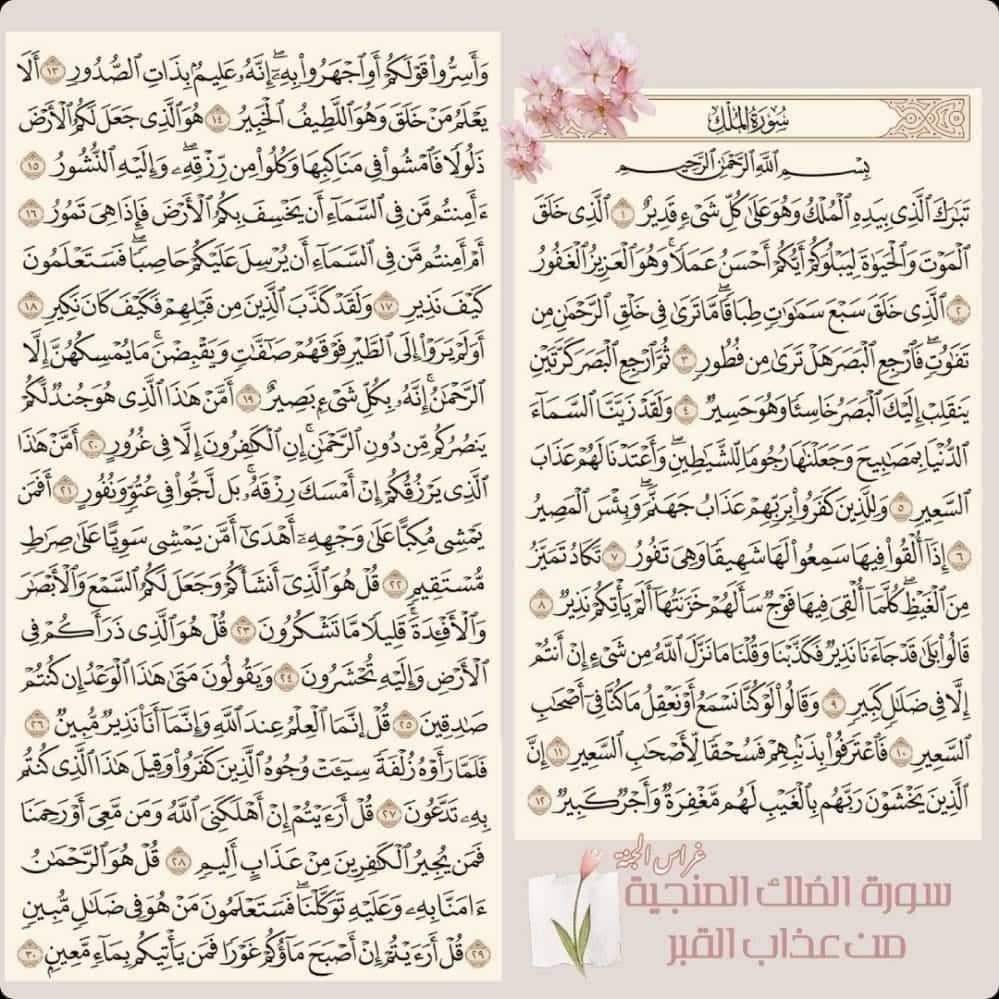 سُورَةُ الْمُلْكِ
بِسْمِ اللَّهِ الرَّحْمَٰنِ الرَّحِيمِ
تَبَارَكَ الَّذِي بِيَدِهِ الْمُلْكُ وَهُوَ عَلَىٰ كُلِّ شَيْءٍ قَدِيرٌ ١ الَّذِي خَلَقَ
الْمَوْتَ وَالْحَيَاةَ لِيَبْلُوَكُمْ أَيُّكُمْ أَحْسَنُ عَمَلًا ۚ وَهُوَ الْعَزِيزُ الْغَفُورُ
٢ الَّذِي خَلَقَ سَبْعَ سَمَاوَاتٍ طِبَاقًا ۖ مَّا تَرَىٰ فِي خَلْقِ الرَّحْمَٰنِ مِن
تَفَاوُتٍ ۖ فَارْجِعِ الْبَصَرَ هَلْ تَرَىٰ مِن فُطُورٍ ٣ ثُمَّ ارْجِعِ الْبَصَرَ كَرَّتَيْنِ
يَنقَلِبْ إِلَيْكَ الْبَصَرُ خَاسِئًا وَهُوَ حَسِيرٌ ٤ وَلَقَدْ زَيَّنَّا السَّمَاءَ
الدُّنْيَا بِمَصَابِيحَ وَجَعَلْنَاهَا رُجُومًا لِّلشَّيَاطِينِ ۖ وَأَعْتَدْنَا لَهُمْ عَذَابَ
السَّعِيرِ ٥ وَلِلَّذِينَ كَفَرُوا بِرَبِّهِمْ عَذَابُ جَهَنَّمَ ۖ وَبِئْسَ الْمَصِيرُ
٦ إِذَا أُلْقُوا فِيهَا سَمِعُوا لَهَا شَهِيقًا وَهِيَ تَفُورُ ٧ تَكَادُ تَمَيَّزُ
مِنَ الْغَيْظِ ۖ كُلَّمَا أُلْقِيَ فِيهَا فَوْجٌ سَأَلَهُمْ خَزَنَتُهَا أَلَمْ يَأْتِكُمْ نَذِيرٌ ٨
قَالُوا بَلَىٰ قَدْ جَاءَنَا نَذِيرٌ فَكَذَّبْنَا وَقُلْنَا مَا نَزَّلَ اللَّهُ مِن شَيْءٍ إِنْ أَنتُمْ
إِلَّا فِي ضَلَالٍ كَبِيرٍ ٩ وَقَالُوا لَوْ كُنَّا نَسْمَعُ أَوْ نَعْقِلُ مَا كُنَّا فِي أَصْحَابِ
السَّعِيرِ ١٠ فَاعْتَرَفُوا بِذَنبِهِمْ فَسُحْقًا لِّأَصْحَابِ السَّعِيرِ ١١ إِنَّ
الَّذِينَ يَخْشَوْنَ رَبَّهُم بِالْغَيْبِ لَهُم مَّغْفِرَةٌ وَأَجْرٌ كَبِيرٌ ١٢
غراس الجنة
سورة المُلك المنجية
من عذاب القبر
وَأَسِرُّوا قَوْلَكُمْ أَوِ اجْهَرُوا بِهِ ۖ إِنَّهُ عَلِيمٌ بِذَاتِ الصُّدُورِ ١٣ أَلَا
يَعْلَمُ مَنْ خَلَقَ وَهُوَ اللَّطِيفُ الْخَبِيرُ ١٤ هُوَ الَّذِي جَعَلَ لَكُمُ الْأَرْضَ
ذَلُولًا فَامْشُوا فِي مَنَاكِبِهَا وَكُلُوا مِن رِّزْقِهِ ۖ وَإِلَيْهِ النُّشُورُ ١٥
ءَأَمِنتُم مَّن فِي السَّمَاءِ أَن يَخْسِفَ بِكُمُ الْأَرْضَ فَإِذَا هِيَ تَمُورُ ١٦
أَمْ أَمِنتُم مَّن فِي السَّمَاءِ أَن يُرْسِلَ عَلَيْكُمْ حَاصِبًا ۖ فَسَتَعْلَمُونَ
كَيْفَ نَذِيرِ ١٧ وَلَقَدْ كَذَّبَ الَّذِينَ مِن قَبْلِهِمْ فَكَيْفَ كَانَ نَكِيرِ ١٨
أَوَلَمْ يَرَوْا إِلَى الطَّيْرِ فَوْقَهُمْ صَافَّاتٍ وَيَقْبِضْنَ ۚ مَا يُمْسِكُهُنَّ إِلَّا
الرَّحْمَٰنُ ۚ إِنَّهُ بِكُلِّ شَيْءٍ بَصِيرٌ ١٩ أَمَّنْ هَٰذَا الَّذِي هُوَ جُندٌ لَّكُمْ
يَنصُرُكُم مِّن دُونِ الرَّحْمَٰنِ ۚ إِنِ الْكَافِرُونَ إِلَّا فِي غُرُورٍ ٢٠ أَمَّنْ هَٰذَا
الَّذِي يَرْزُقُكُمْ إِنْ أَمْسَكَ رِزْقَهُ ۚ بَل لَّجُّوا فِي عُتُوٍّ وَنُفُورٍ ٢١ أَفَمَن
يَمْشِي مُكِبًّا عَلَىٰ وَجْهِهِ أَهْدَىٰ أَمَّن يَمْشِي سَوِيًّا عَلَىٰ صِرَاطٍ
مُّسْتَقِيمٍ ٢٢ قُلْ هُوَ الَّذِي أَنشَأَكُمْ وَجَعَلَ لَكُمُ السَّمْعَ وَالْأَبْصَارَ
وَالْأَفْئِدَةَ ۖ قَلِيلًا مَّا تَشْكُرُونَ ٢٣ قُلْ هُوَ الَّذِي ذَرَأَكُمْ فِي
الْأَرْضِ وَإِلَيْهِ تُحْشَرُونَ ٢٤ وَيَقُولُونَ مَتَىٰ هَٰذَا الْوَعْدُ إِن كُنتُمْ
صَادِقِينَ ٢٥ قُلْ إِنَّمَا الْعِلْمُ عِندَ اللَّهِ وَإِنَّمَا أَنَا نَذِيرٌ مُّبِينٌ ٢٦
فَلَمَّا رَأَوْهُ زُلْفَةً سِيئَتْ وُجُوهُ الَّذِينَ كَفَرُوا وَقِيلَ هَٰذَا الَّذِي كُنتُم
بِهِ تَدَّعُونَ ٢٧ قُلْ أَرَأَيْتُمْ إِنْ أَهْلَكَنِيَ اللَّهُ وَمَن مَّعِيَ أَوْ رَحِمَنَا
فَمَن يُجِيرُ الْكَافِرِينَ مِنْ عَذَابٍ أَلِيمٍ ٢٨ قُلْ هُوَ الرَّحْمَٰنُ
ءَامَنَّا بِهِ وَعَلَيْهِ تَوَكَّلْنَا ۖ فَسَتَعْلَمُونَ مَنْ هُوَ فِي ضَلَالٍ مُّبِينٍ
٢٩ قُلْ أَرَأَيْتُمْ إِنْ أَصْبَحَ مَاؤُكُمْ غَوْرًا فَمَن يَأْتِيكُم بِمَاءٍ مَّعِينٍ ٣٠